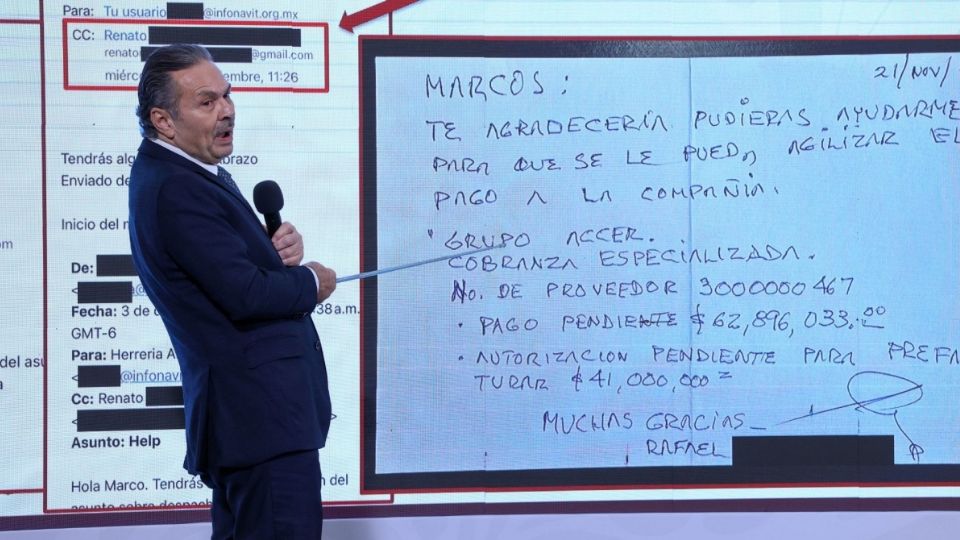 Para: Tu usuario @infonavit.org.mx
CC: Renato
renato @gmail.com
miérc embre, 11:26
Tendrás alg orazo
Enviado de
Inicio del m
com
De:
@
Fecha: 3 de 38 a.m.
GMT-6
Para: Herreria A
@infonavi
Cc: Renato
Asunto: Help
Hola Marco. Tendrás n del
asunto sobre despach
del asu
MARCOS: 21/NOV/
TE AGRADECERÍA PUDIERAS AYUDARME
PARA QUE SE LE PUEDA AGILIZAR EL
PAGO A LA COMPAÑIA.
GRUPO ACCER.
COBRANZA ESPECIALIZADA.
No. DE PROVEEDOR 3000000467
· PAGO PENDIENTE $62,896,033.00
· AUTORIZACION PENDIENTE PARA PREFA
TURAR $41,000,000=
MUCHAS GRACIAS_
RAFAEL